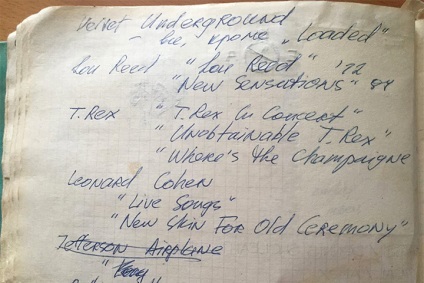 Velvet Underground
- все, кроме „Loaded"
Lou Reed "Lou Reed" '72
"New Sensations" 84
T.Rex "T.Rex In Concert"
"Unobtainable T.Rex"
"Where's the Champaigne
Leonard Cohen
"Live Songs"
"New Skin For Old Ceremony"
Jefferson Airplane